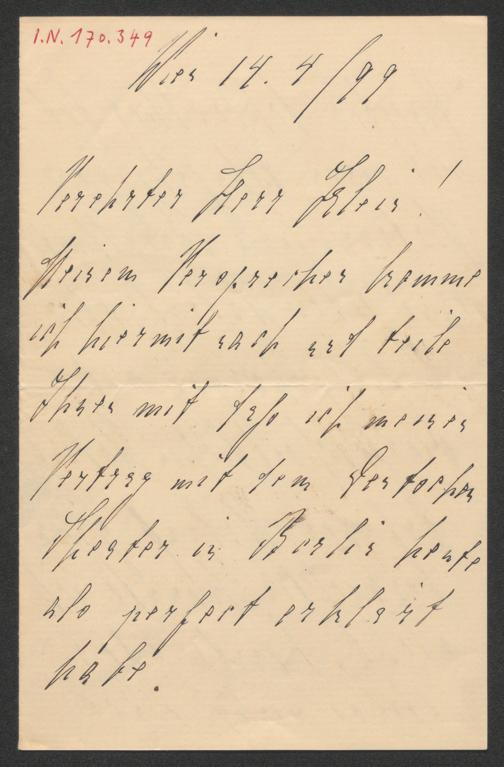 I.N. 170.349
Wien 14. 4/99
Verehrter Herr Klein!
Meinem Versprechen komme
ich hiermit nach und teile
Ihnen mit daß ich meinen
Vertrag mit dem Deutschen
Theater in Berlin heute
als perfect erklärt
habe.